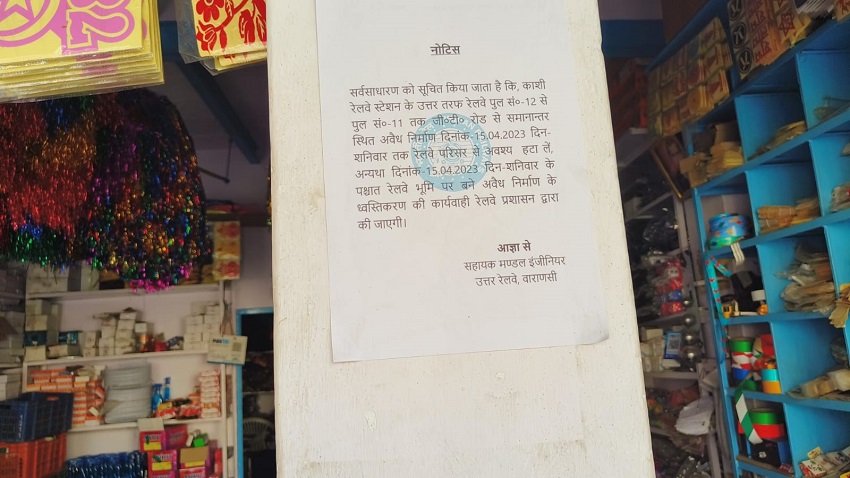 नोटिस
सर्वसाधारण को सूचित किया जाता है कि, काशी
रेलवे स्टेशन के उत्तर तरफ रेलवे पुल सं०-12 से
पुल सं०-11 तक जी०टी० रोड से समानान्तर
स्थित अवैध निर्माण दिनांक 15.04.2023 दिन-
शनिवार तक रेलवे परिसर से अवश्य हटा लें,
अन्यथा दिनांक-15.04.2023 दिन-शनिवार के
पश्चात रेलवे भूमि पर बने अवैध निर्माण के
ध्वस्तिकरण की कार्यवाही रेलवे प्रशासन द्वारा
की जाएगी।
आज्ञा से
सहायक मण्डल इंजीनियर
उत्तर रेलवे, वाराणसी